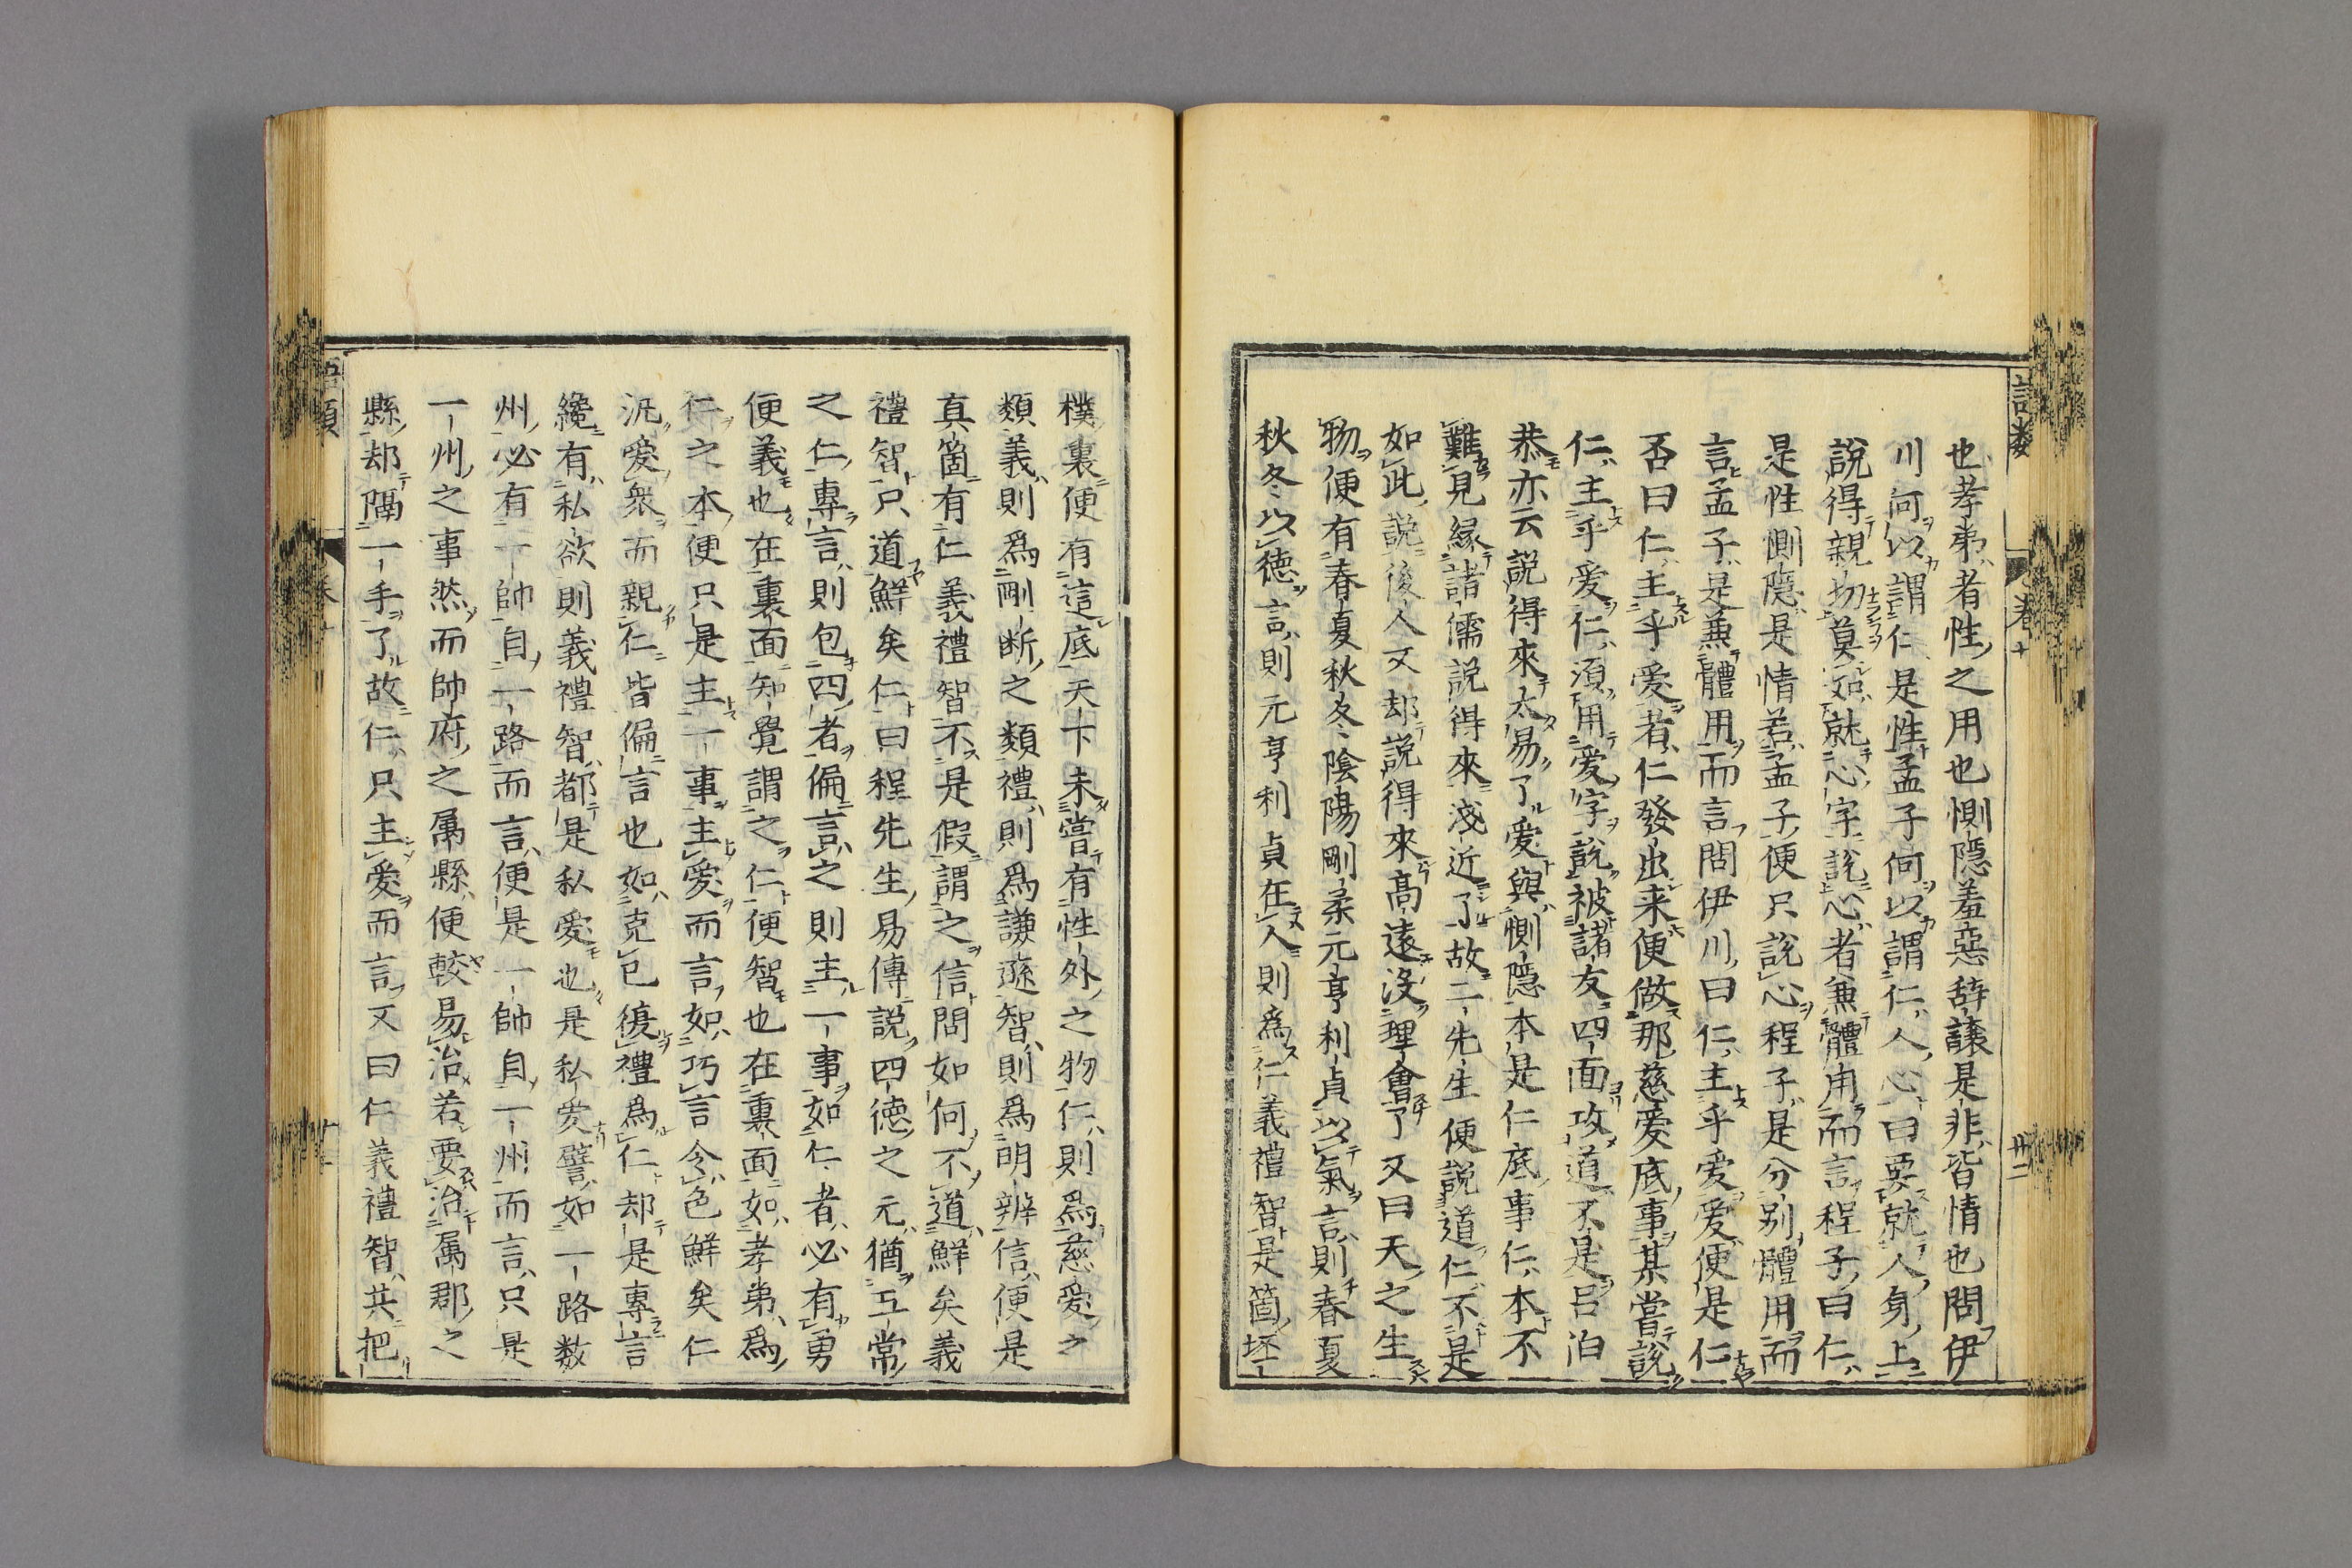 也孝弟者性之用也惻隱羞惡辭讓是非皆情也問伊
川何以謂仁是性孟子何以謂仁人心曰要就人身上
說得親切莫如就心字說心者兼體用而言程子曰仁
是性惻隱是情若孟子便只說心程子是分別體用而
言孟子是兼體用而言問伊川曰仁主乎愛愛便是仁
否曰仁主乎愛者仁發出来便做那慈愛底事某嘗說
仁主乎愛仁須用愛字說被諸友四面攻道不是呂泊
恭亦云說得來太易了愛與惻隱本是仁底事仁本不
難見縁諸儒説得來淺近了故二先生便説道仁不是
如此説後人又却説得來高遠没理會了又曰天之生
物便有春夏秋冬陰陽剛柔元亨利貞以氣言則春夏
秋冬以徳言則元亨利貞在人則爲仁義禮智是箇坯
樸裏便有這底天下未嘗有性外之物仁則爲慈愛之
類義則爲剛断之類禮則爲謙遜智則爲明辨信便是
真箇有仁義禮智不是假謂之信問如何不道鮮矣義
禮智只道鮮矣仁曰程先生易傳説四徳之元猶五常
之仁專言則包四者偏言之則主一事如仁者必有勇
便義也在裏面知覺謂之仁便智也在裏面如孝弟爲
仁之本便只是主一事主愛而言如巧言令色鮮矣仁
汎愛衆而親仁皆偏言也如克已復禮爲仁却是專言
纔有私欲則義禮智都是私愛也是私愛譬如一路数
州必有一帥自一路而言便是一帥自一州而言只是
一州之事然而帥府之属縣便較易治若要治属郡之
縣却隔一手了故仁只主愛而言又曰仁義禮智共把
語類
卷十
卅二